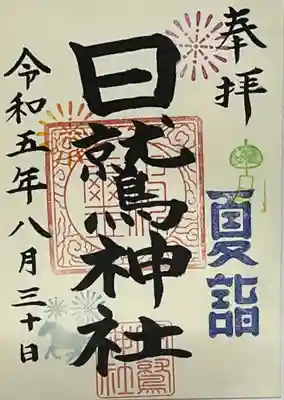 奉拝
夏詣
日鷲神社
令和五年八月三十日